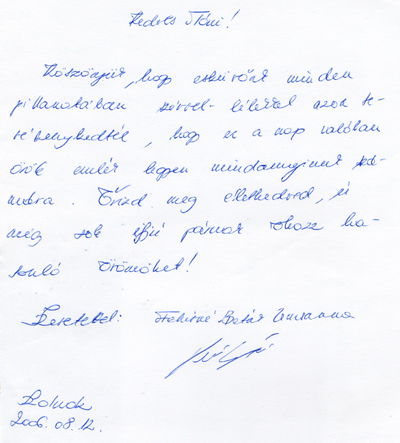 Kedves Móni!
Köszönjük, hogy esküvőnk minden
pillanatában szívvel-lélekkel azon te-
vékenykedtél, hogy ez a nap valóban
örök emlék legyen mindannyiunk szá-
mára. Őrizd meg életkedved, és
még sok ifjú párnak okozz ha-
sonló örömöket!
Szeretettel: Zsuzsanna
Szolnok
2006. 08. 12.